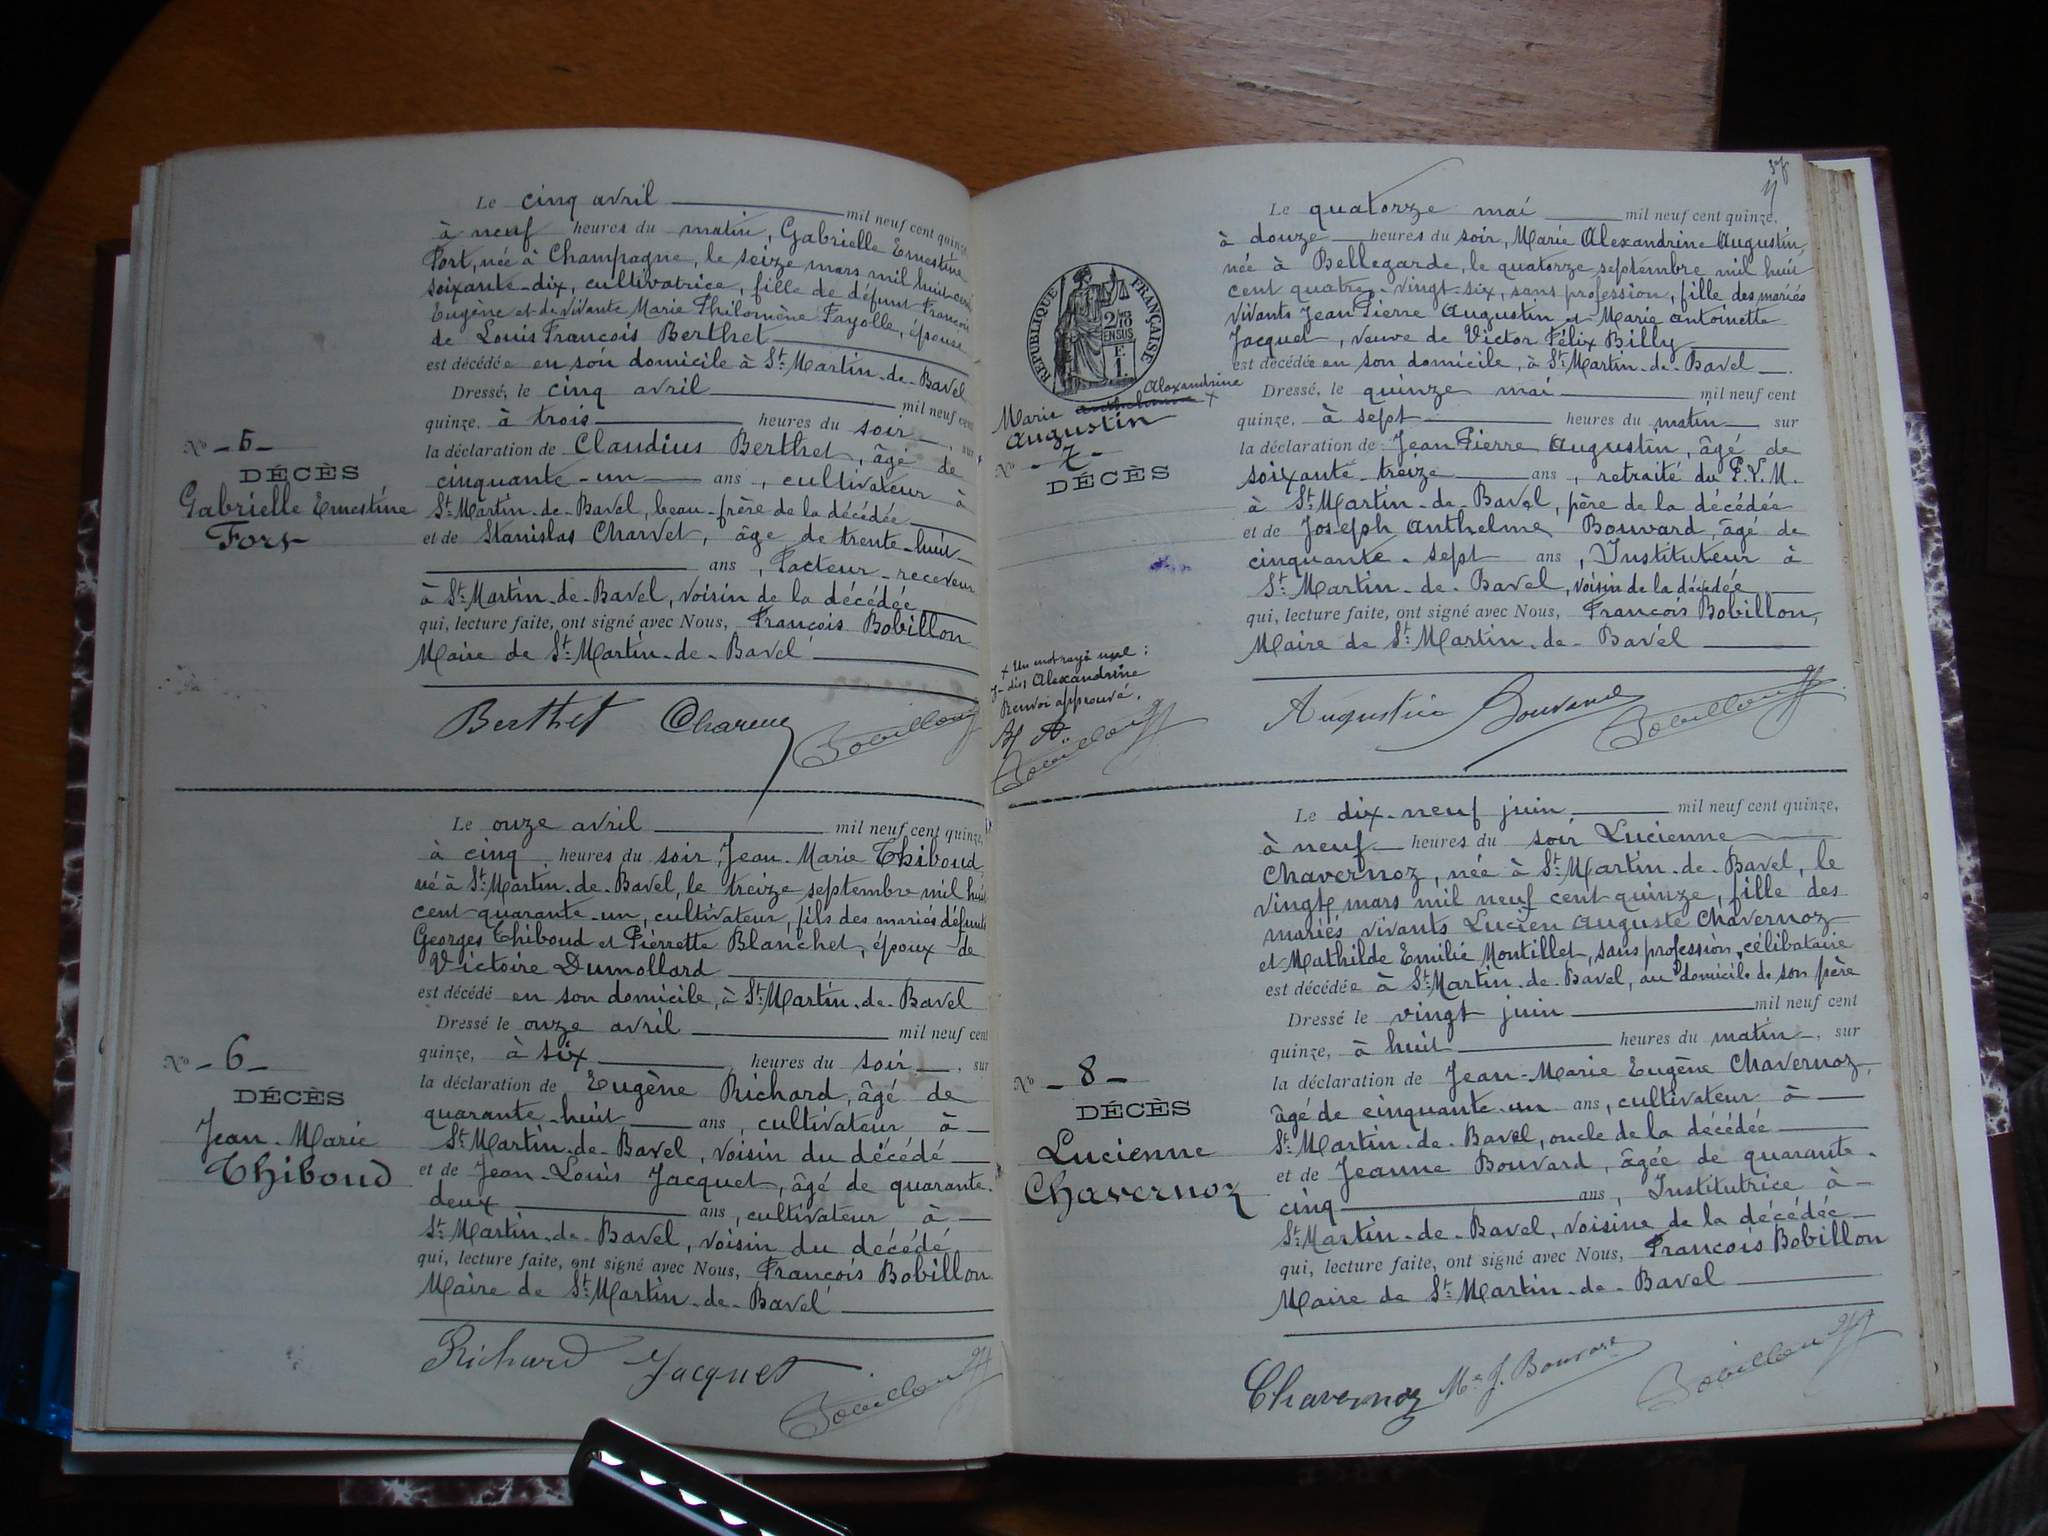 Le cinq avril mil neuf cent quinze
à neuf heures du matin, Gabrielle Ernestine
Fort, née à Champagne, le seize mars mil huit-cent
soixante-dix, cultivatrice, fille de défunt François
Eugène et de vivante Marie Philomène Fayolle, épouse
de Louis François Berthet
est décédée en son domicile à St Martin-de-Bavel
Dressé, le cinq avril mil neuf cent
quinze, à trois heures du soir, sur
la déclaration de Claudius Berthet, âgé de
cinquante-un ans, cultivateur à
St Martin-de-Bavel, beau-frère de la décédée
et de Stanislas Charvet, âge de trente-huit
ans, facteur-receveur
à St Martin-de-Bavel, voisin de la décédée
qui, lecture faite, ont signé avec Nous, François Bobillon
Maire de St Martin-de-Bavel
No -5-
DÉCÈS
Gabrielle Ernestine
Fort
Berthet Charvet Bobillon
Le onze avril mil neuf cent quinze,
à cinq heures du soir, Jean-Marie Thiboud,
né à St Martin-de-Bavel, le treize septembre mil huit
cent quarante-un, cultivateur, fils des mariés défunts
Georges Thiboud et Pierrette Blanchet, époux de
Victoire Dumollard
est décédé en son domicile, à St Martin-de-Bavel
Dressé le onze avril mil neuf cent
quinze, à six heures du soir, sur
la déclaration de Eugène Richard, âgé de
quarante-huit ans, cultivateur à
St Martin-de-Bavel, voisin du décédé
et de Jean-Louis Jacquet, âgé de quarante-
deux ans, cultivateur à
St Martin-de-Bavel, voisin du décédé
qui, lecture faite, ont signé avec Nous, François Bobillon
Maire de St Martin-de-Bavel
No -6-
DÉCÈS
Jean-Marie
Thiboud
Richard Jacquet Bobillon
Le quatorze mai mil neuf cent quinze,
à douze heures du soir, Marie Alexandrine Augustin,
née à Bellegarde, le quatorze septembre mil huit
cent quatre-vingt-six, sans profession, fille des mariés
vivants Jean Pierre Augustin et Marie Antoinette
Jacquet, veuve de Victor Félix Billy
est décédée en son domicile, à St Martin-de-Bavel
Dressé, le quinze mai mil neuf cent
quinze, à sept heures du matin, sur
la déclaration de Jean Pierre Augustin, âgé de
soixante-treize ans, retraité du P.L.M.
à St Martin-de-Bavel, père de la décédée
et de Joseph Anthelme Bouvard, âgé de
cinquante-sept ans, Instituteur à
St Martin-de-Bavel, voisin de la décédée
qui, lecture faite, ont signé avec Nous, François Bobillon,
Maire de St Martin-de-Bavel
RÉPUBLIQUE FRANÇAISE
2/10 EN SUS
Alexandrine
Marie x
Augustin
No -7-
DÉCÈS
x Un mot rayé nul:
Alexandrine
Renvoi approuvé.
Bobillon
Augustin Bouvard Bobillon
Le dix-neuf juin mil neuf cent quinze,
à neuf heures du soir Lucienne
Chavernoz, née à St Martin-de-Bavel, le
vingt mars mil neuf cent quinze, fille des
mariés vivants Lucien Auguste Chavernoz
et Mathilde Emilie Montillet, sans profession, célibataire
est décédée à St Martin-de-Bavel, au domicile de son père
Dressé le vingt juin mil neuf cent
quinze, à huit heures du matin, sur
la déclaration de Jean-Marie Eugène Chavernoz,
âgé de cinquante-un ans, cultivateur à
St Martin-de-Bavel, oncle de la décédée
et de Jeanne Bouvard, âgée de quarante-
cinq ans, Institutrice à
St Martin-de-Bavel, voisine de la décédée
qui, lecture faite, ont signé avec Nous, François Bobillon
Maire de St Martin-de-Bavel
No -8-
DÉCÈS
Lucienne
Chavernoz
Chavernoz Me J. Bouvard Bobillon